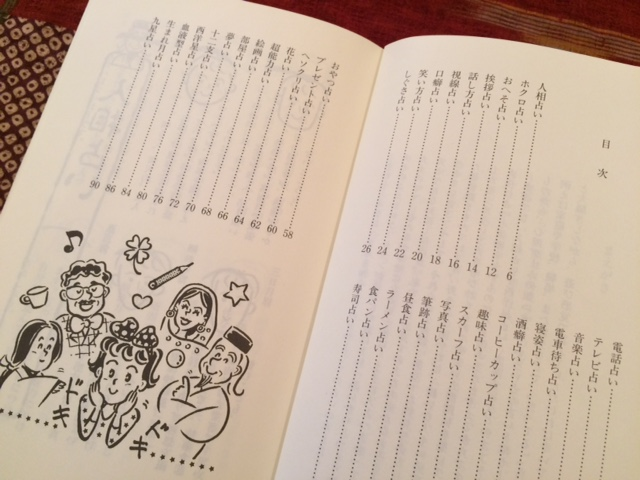 目次
人相占い 6
ホクロ占い 12
おへそ占い 14
挨拶占い 16
話し方占い 18
視線占い 20
口癖占い 22
笑い方占い 24
しぐさ占い 26
電話占い
テレビ占い
音楽占い
電車待ち占い
寝姿占い
酒癖占い
コーヒーカップ占い
趣味占い
スカーフ占い
写真占い
筆跡占い
昼食占い
ラーメン占い
食パン占い
寿司占い
おやつ占い 58
プレゼント占い 60
ヘソクリ占い 62
花占い 64
超能力占い 66
絵画占い 68
部屋占い 70
夢占い 72
十二支占い 76
西洋星占い 80
血液型占い 84
生まれ月占い 86
九星占い 90
ドキドキ